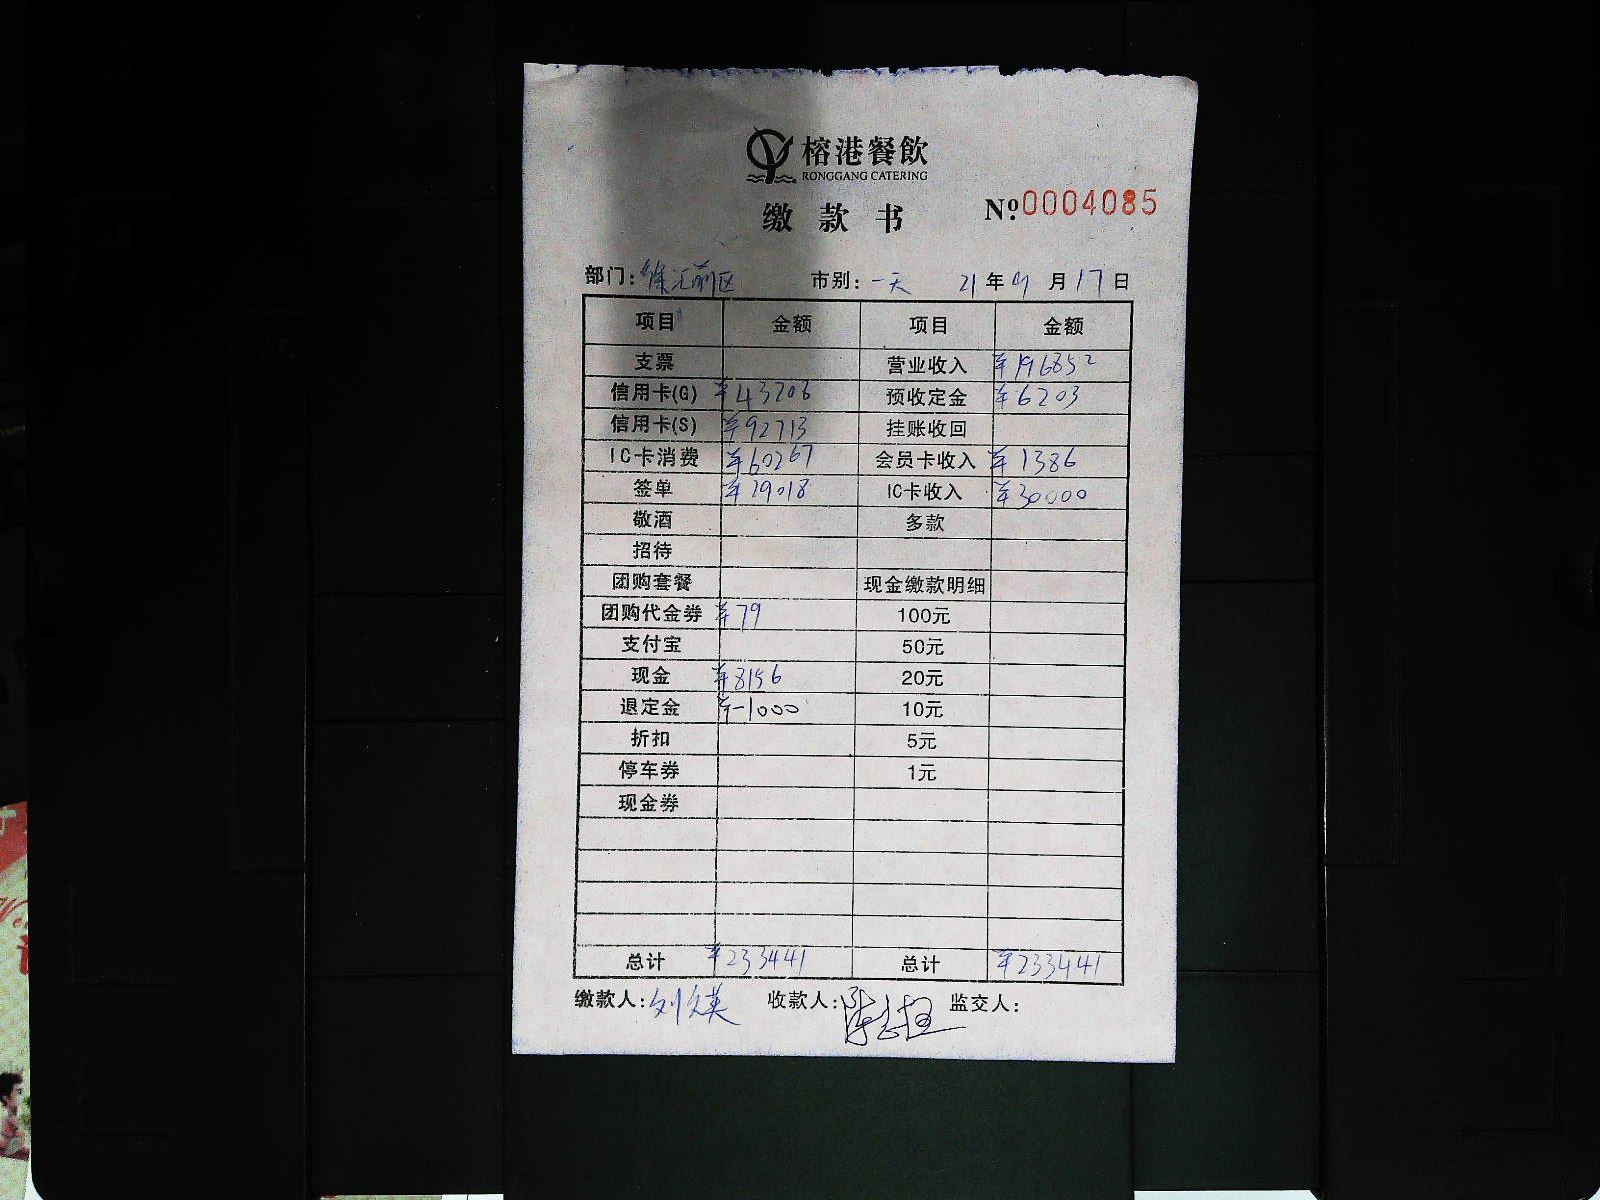 榕港餐飲
RONGGANG CATERING
缴款书 Nº 0004085
部门: 徐汇前区 市别: 一天 21年 月17日
项目 金额 项目 金额
支票 营业收入 ¥196852
信用卡(G) ¥43208 预收定金 ¥6203
信用卡(S) ¥92713 挂账收回
IC卡消费 ¥60267 会员卡收入 ¥1386
签单 ¥29018 IC卡收入 ¥30000
敬酒 多款
招待
团购套餐 现金缴款明细
团购代金券 ¥79 100元
支付宝 50元
现金 ¥8156 20元
退定金 ¥-1000 10元
折扣 5元
停车券 1元
现金券
总计 ¥233441 总计 ¥233441
缴款人: 刘文英 收款人: 监交人: